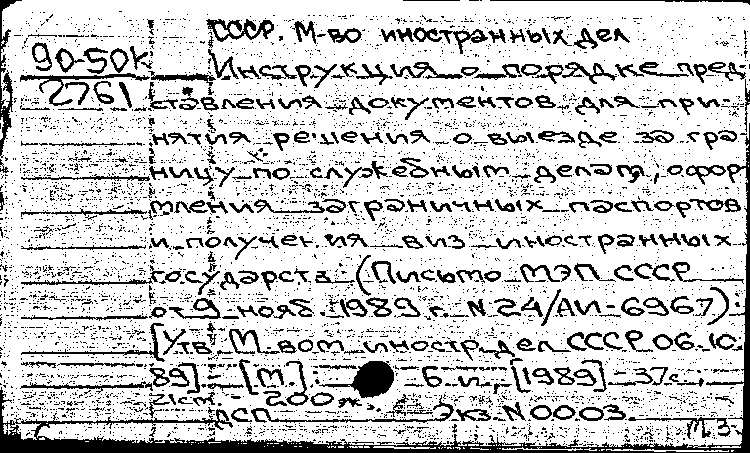 СССР. М-во иностранных дел
90-50к
2761
Инструкция о порядке пред-
ставления документов для при-
нятия решения о выезде за гра-
ницу по служебным делам, офор-
мления заграничных паспортов
и получения виз иностранных
государств (Письмо МЭП СССР
от 9 нояб. 1989 г. N 24/АИ-6967):
[Утв. М-вом иностр. дел СССР 06.10.
89]. - [М.]: Б.и., [1989] - 37с.;
21см. - 200 экз.
ДСП Экз. N 0003.
М.З.